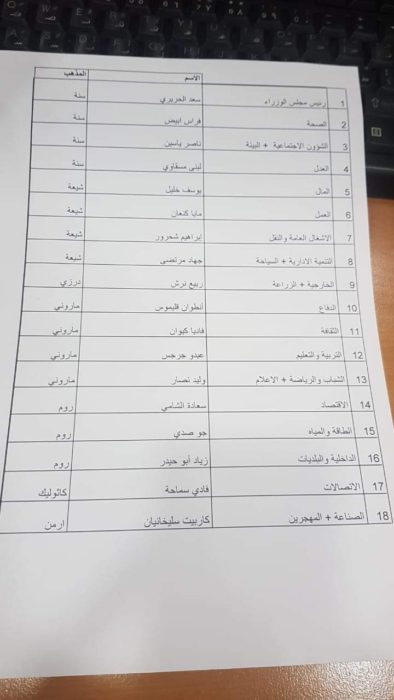 الاسم المذهب
1 رئيس مجلس الوزراء سعد الحريري سنة
2 الصحة فراس ابيض سنة
3 الشؤون الاجتماعية + البيئة ناصر ياسين سنة
4 العدل لبنى مسقاوي سنة
5 المال يوسف خليل شيعة
6 العمل مايا كنعان شيعة
7 الاشغال العامة والنقل ابراهيم شحرور شيعة
8 التنمية الادارية + السياحة جهاد مرتضى شيعة
9 الخارجية + الزراعة ربيع نرش درزي
10 الدفاع أنطوان قليموس ماروني
11 الثقافة فاديا كيوان ماروني
12 التربية والتعليم عبدو جرجس ماروني
13 الشباب والرياضة + الاعلام وليد نصار ماروني
14 الاقتصاد سعادة الشامي روم
15 الطاقة والمياه جو صدي روم
16 الداخلية والبلديات زياد أبو حيدر روم
17 الاتصالات فادي سماحة كاثوليك
18 الصناعة + المهجرين كاربيت سليخانيان ارمن